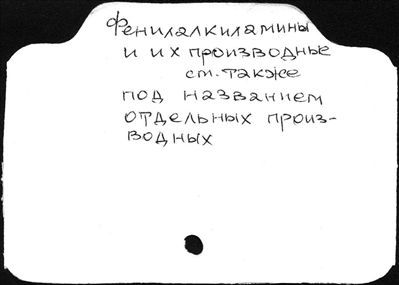 Фенилалкиламины
и их производные
см. также
под названием
отдельных произ-
водных